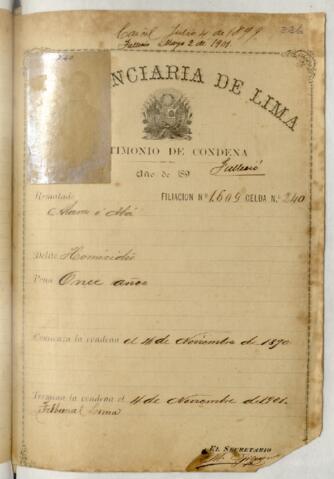 Julio 4 de 1899
Falleció Marzo 2 de 1901.
226
240
NCIARIA DE LIMA
TIMONIO DE CONDENA
Año de 189
Falleció
Rematado
FILIACION N.º 1.609 CELDA N.º 240
Delito Homicidio
Pena Once años
Comienza la condena el 4 de Noviembre de 1890
Termina la condena el 4 de Noviembre de 1901.
Tribunal Lima
EL SECRETARIO